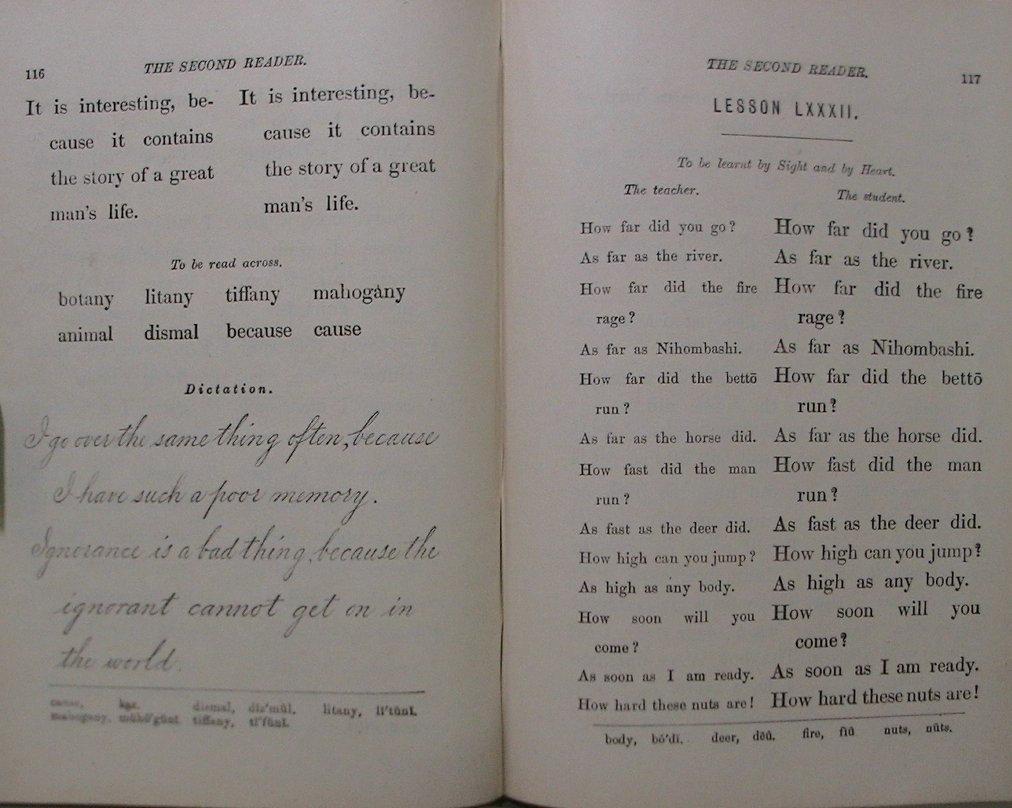 116
THE SECOND READER.
It is interesting, be-
cause it contains
the story of a great
man's life.
It is interesting, be-
cause it contains
the story of a great
man's life.
To be read across.
botany litany tiffany mahogany
animal dismal because cause
Dictation.
I go over the same thing often, because
I have such a poor memory.
Ignorance is a bad thing, because the
ignorant cannot get on in
the world.
cause, dismal, diz'mŭl. litany,
mahogany, tiffany,
THE SECOND READER.
117
LESSON LXXXII.
To be learnt by Sight and by Heart.
The teacher.
How far did you go?
As far as the river.
How far did the fire
rage?
As far as Nihombashi.
How far did the bettō
run?
As far as the horse did.
How fast did the man
run?
As fast as the deer did.
How high can you jump?
As high as any body.
How soon will you
come?
As soon as I am ready.
How hard these nuts are!
The student.
How far did you go?
As far as the river.
How far did the fire
rage?
As far as Nihombashi.
How far did the bettō
run?
As far as the horse did.
How fast did the man
run?
As fast as the deer did.
How high can you jump?
As high as any body.
How soon will you
come?
As soon as I am ready.
How hard these nuts are!
body, deer, fire, nuts, nŭts.